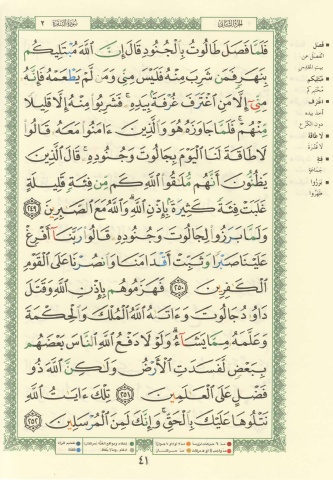 سورة البقرة ٢
الجزء الثاني
فَلَمَّا فَصَلَ طَالُوتُ بِالْجُنُودِ قَالَ إِنَّ اللَّهَ مُبْتَلِيكُم
بِنَهَرٍ فَمَن شَرِبَ مِنْهُ فَلَيْسَ مِنِّي وَمَن لَّمْ يَطْعَمْهُ فَإِنَّهُ
مِنِّي إِلَّا مَنِ اغْتَرَفَ غُرْفَةً بِيَدِهِ ۚ فَشَرِبُوا مِنْهُ إِلَّا قَلِيلًا
مِّنْهُمْ ۚ فَلَمَّا جَاوَزَهُ هُوَ وَالَّذِينَ ءَامَنُوا مَعَهُ قَالُوا
لَا طَاقَةَ لَنَا الْيَوْمَ بِجَالُوتَ وَجُنُودِهِ ۚ قَالَ الَّذِينَ
يَظُنُّونَ أَنَّهُم مُّلَاقُوا اللَّهِ كَم مِّن فِئَةٍ قَلِيلَةٍ
غَلَبَتْ فِئَةً كَثِيرَةً بِإِذْنِ اللَّهِ ۗ وَاللَّهُ مَعَ الصَّابِرِينَ ٢٤٩
وَلَمَّا بَرَزُوا لِجَالُوتَ وَجُنُودِهِ قَالُوا رَبَّنَا أَفْرِغْ
عَلَيْنَا صَبْرًا وَثَبِّتْ أَقْدَامَنَا وَانصُرْنَا عَلَى الْقَوْمِ
الْكَافِرِينَ ٢٥٠ فَهَزَمُوهُم بِإِذْنِ اللَّهِ وَقَتَلَ
دَاوُدُ جَالُوتَ وَءَاتَاهُ اللَّهُ الْمُلْكَ وَالْحِكْمَةَ
وَعَلَّمَهُ مِمَّا يَشَاءُ ۗ وَلَوْلَا دَفْعُ اللَّهِ النَّاسَ بَعْضَهُم
بِبَعْضٍ لَّفَسَدَتِ الْأَرْضُ وَلَٰكِنَّ اللَّهَ ذُو
فَضْلٍ عَلَى الْعَالَمِينَ ٢٥١ تِلْكَ ءَايَاتُ اللَّهِ
نَتْلُوهَا عَلَيْكَ بِالْحَقِّ ۚ وَإِنَّكَ لَمِنَ الْمُرْسَلِينَ ٢٥٢
فصل
مبتليكم
مختبركم
اغترف
لا طاقة
لا قدرة
فئة
جماعة
برزوا
ظهروا
٤١